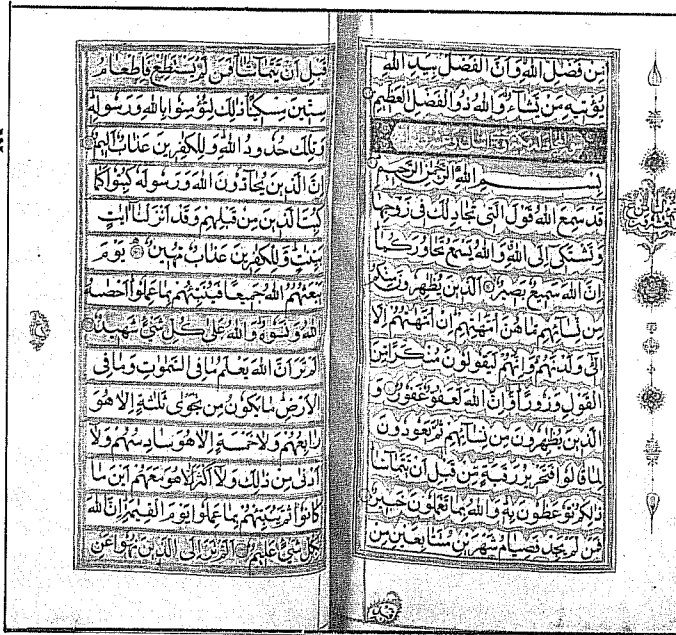 مِنْ فَضْلِ اللّٰهِ وَاَنَّ الْفَضْلَ بِيَدِ اللّٰهِ
يُؤْتِيهِ مَنْ يَشَاءُ وَاللّٰهُ ذُو الْفَضْلِ الْعَظِيمِ
بِسْمِ اللّٰهِ الرَّحْمٰنِ الرَّحِيمِ
قَدْ سَمِعَ اللّٰهُ قَوْلَ الَّتِى تُجَادِلُكَ فِى زَوْجِهَا
وَتَشْتَكِى اِلَى اللّٰهِ وَاللّٰهُ يَسْمَعُ تَحَاوُرَكُمَا
اِنَّ اللّٰهَ سَمِيعٌ بَصِيرٌ اَلَّذِينَ يُظٰهِرُونَ مِنْكُمْ
مِنْ نِسَائِهِمْ مَا هُنَّ اُمَّهٰتِهِمْ اِنْ اُمَّهٰتُهُمْ اِلَّا
الّٰئِ وَلَدْنَهُمْ وَاِنَّهُمْ لَيَقُولُونَ مُنْكَرًا مِنَ
الْقَوْلِ وَزُورًا وَاِنَّ اللّٰهَ لَعَفُوٌّ غَفُورٌ وَ
الَّذِينَ يُظٰهِرُونَ مِنْ نِسَائِهِمْ ثُمَّ يَعُودُونَ
لِمَا قَالُوا فَتَحْرِيرُ رَقَبَةٍ مِنْ قَبْلِ اَنْ يَتَمَاسَّا
ذٰلِكُمْ تُوعَظُونَ بِهِ وَاللّٰهُ بِمَا تَعْمَلُونَ خَبِيرٌ
فَمَنْ لَمْ يَجِدْ فَصِيَامُ شَهْرَيْنِ مُتَتَابِعَيْنِ مِنْ
قَبْلِ اَنْ يَتَمَاسَّا فَمَنْ لَمْ يَسْتَطِعْ فَاِطْعَامُ
سِتِّينَ مِسْكِينًا ذٰلِكَ لِتُؤْمِنُوا بِاللّٰهِ وَرَسُولِهِ
وَتِلْكَ حُدُودُ اللّٰهِ وَلِلْكٰفِرِينَ عَذَابٌ اَلِيمٌ
اِنَّ الَّذِينَ يُحَادُّونَ اللّٰهَ وَرَسُولَهُ كُبِتُوا كَمَا
كُبِتَ الَّذِينَ مِنْ قَبْلِهِمْ وَقَدْ اَنْزَلْنَا اٰيٰتٍ
بَيِّنٰتٍ وَلِلْكٰفِرِينَ عَذَابٌ مُهِينٌ يَوْمَ
يَبْعَثُهُمُ اللّٰهُ جَمِيعًا فَيُنَبِّئُهُمْ بِمَا عَمِلُوا اَحْصٰيهُ
اللّٰهُ وَنَسُوهُ وَاللّٰهُ عَلٰى كُلِّ شَىْءٍ شَهِيدٌ
اَلَمْ تَرَ اَنَّ اللّٰهَ يَعْلَمُ مَا فِى السَّمٰوٰتِ وَمَا فِى
الْاَرْضِ مَا يَكُونُ مِنْ نَجْوٰى ثَلٰثَةٍ اِلَّا هُوَ
رَابِعُهُمْ وَلَا خَمْسَةٍ اِلَّا هُوَ سَادِسُهُمْ وَلَا
اَدْنٰى مِنْ ذٰلِكَ وَلَا اَكْثَرَ اِلَّا هُوَ مَعَهُمْ اَيْنَ مَا
كَانُوا ثُمَّ يُنَبِّئُهُمْ بِمَا عَمِلُوا يَوْمَ الْقِيٰمَةِ اِنَّ اللّٰهَ
بِكُلِّ شَىْءٍ عَلِيمٌ اَلَمْ تَرَ اِلَى الَّذِينَ نُهُوا عَنِ